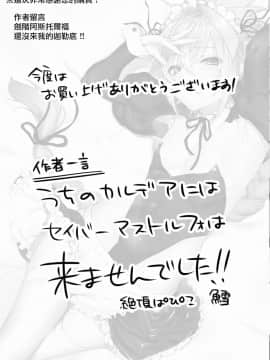 來這次非常感謝您的購買！
作者留言
劍階阿斯托爾福
還沒來我的迦勒底 !!
今度は
お買い上げありがとうございます!
作者一言
うちのカルデアには
セイバーアストルフォは
来ませんでした!!
絶頂ぱぴこ 鱈